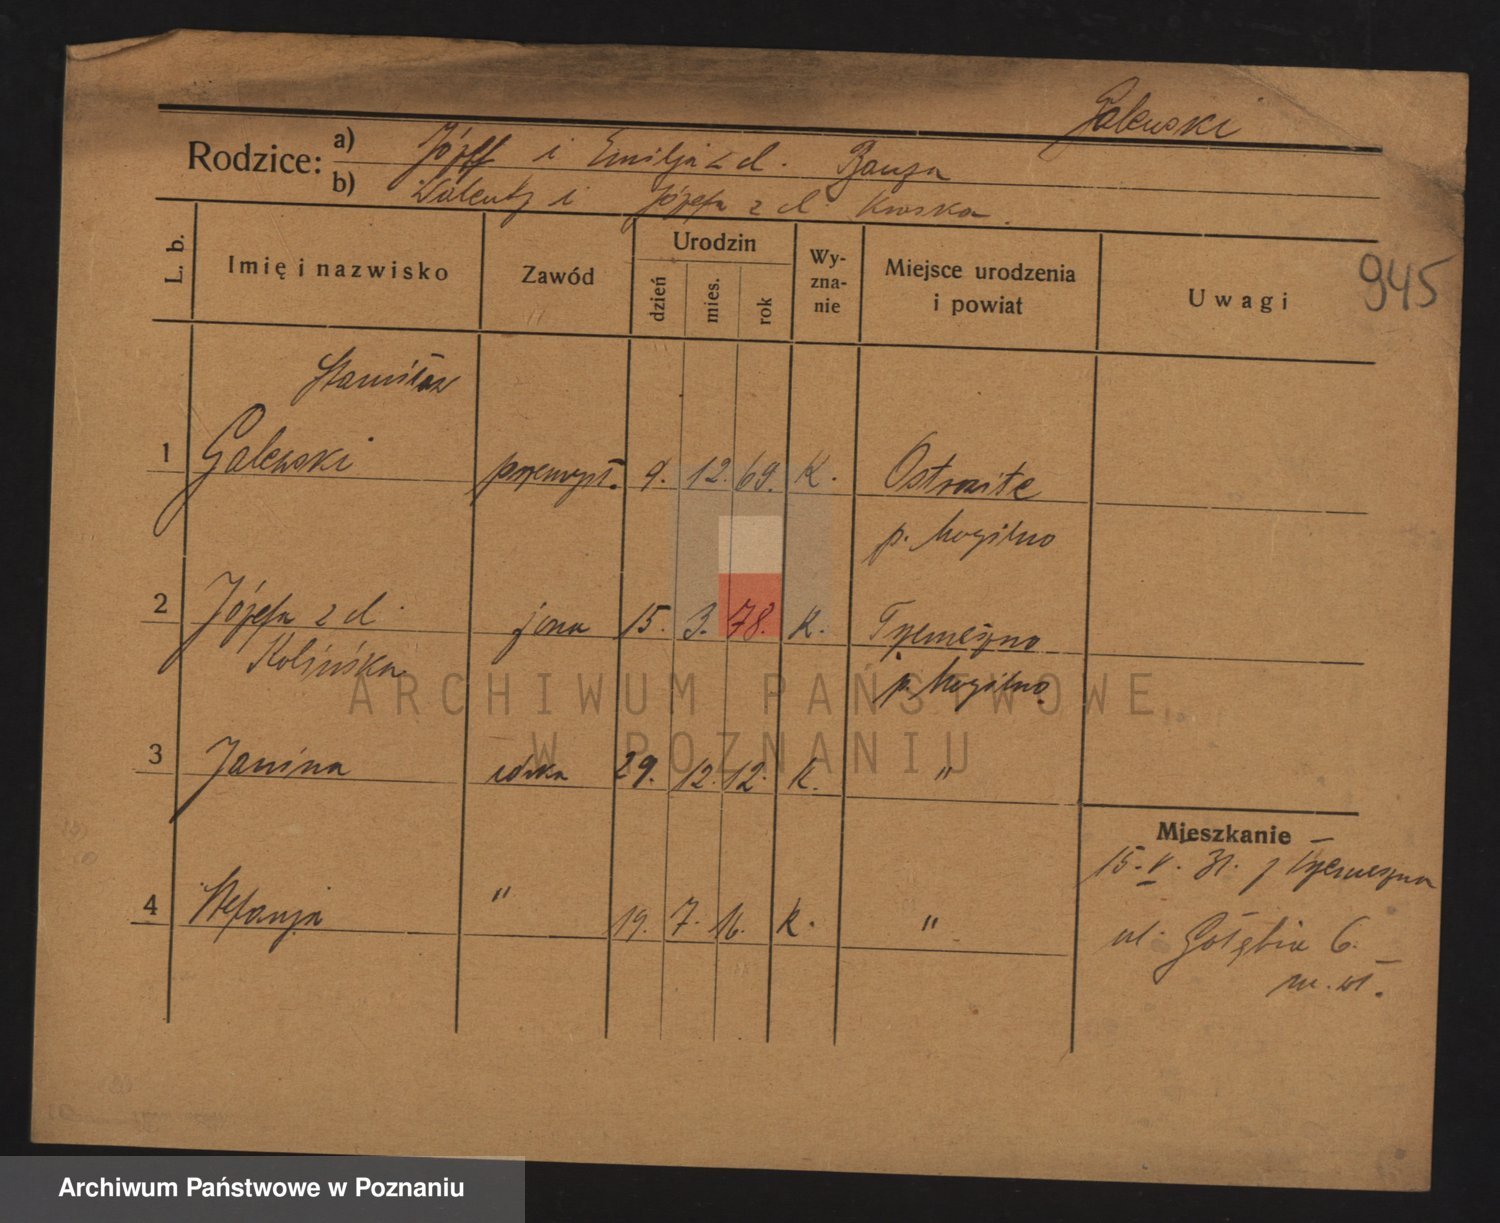 Galewski
Rodzice: a) Józef i Emilja z d. Banza
b) Walenty i Józefa z d. Kroska.
L. b. Imię i nazwisko Zawód Urodzin dzień mies. rok Wy-zna-nie Miejsce urodzenia i powiat Uwagi 945
Stanisław
1 Galewski przemysł. 9. 12. 69. K. Ostrowite
p. Mogilno
2 Józefa z d. żona 15. 3. 78. K. Trzemeszno
Kolińska p. Mogilno
3 Janina córka 29. 12. 12. K. "
Mieszkanie
15. V. 31. z Trzemeszna
4 Stefanja " 19. 7. 16. K. "
ul. Gołębia 6.
m. wł.
ARCHIWUM PAŃSTWOWE
W POZNANIU
Archiwum Państwowe w Poznaniu